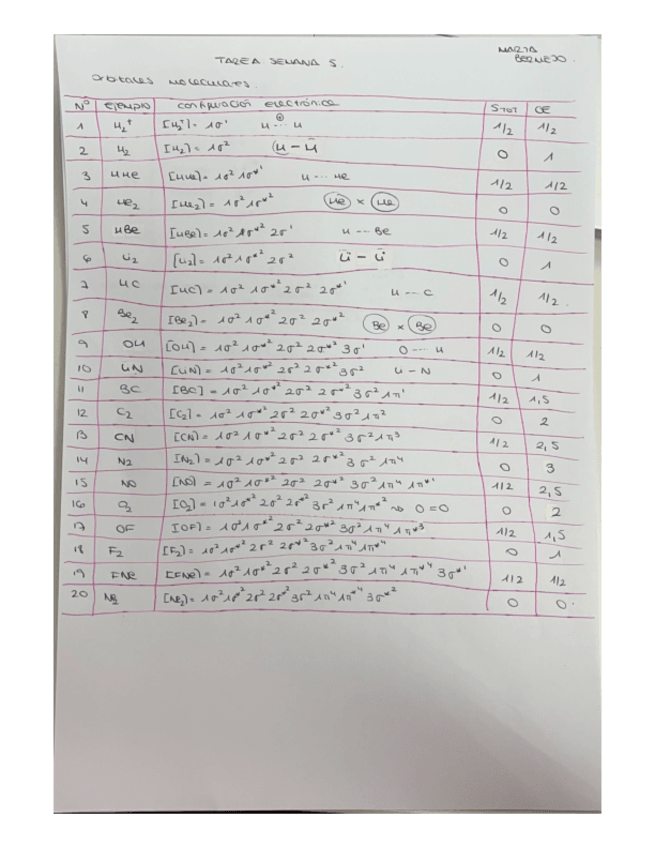 TAREA SEMANA 5.
MARTA
BERMEJO.
orbitales moleculares.
Nº EJEMPLO configuración electrónica STOT OE
1 H₂⁺ [H₂⁺]= 1σ¹ H ... H ⊕ 1/2 1/2
2 H₂ [H₂]= 1σ² H - H 0 1
3 HHe [HHe]= 1σ² 1σ*¹ H ... He 1/2 1/2
4 He₂ [He₂]= 1σ² 1σ*² He x He 0 0
5 HBe [HBe]= 1σ² 1σ*² 2σ¹ H --- Be 1/2 1/2
6 Li₂ [Li₂]= 1σ² 1σ*² 2σ² Li - Li 0 1
7 HC [HC]= 1σ² 1σ*² 2σ² 2σ*¹ H --- C 1/2 1/2.
8 Be₂ [Be₂]= 1σ² 1σ*² 2σ² 2σ*² Be x Be 0 0
9 OH [OH]= 1σ² 1σ*² 2σ² 2σ*² 3σ¹ O ---- H 1/2 1/2
10 LiN [LiN]= 1σ² 1σ*² 2σ² 2σ*² 3σ² Li - N 0 1
11 BC [BC]= 1σ² 1σ*² 2σ² 2σ*² 3σ² 1π¹ 1/2 1,5
12 C₂ [C₂]= 1σ² 1σ*² 2σ² 2σ*² 3σ² 1π² 0 2
13 CN [CN]= 1σ² 1σ*² 2σ² 2σ*² 3σ² 1π³ 1/2 2,5
14 N₂ [N₂]= 1σ² 1σ*² 2σ² 2σ*² 3σ² 1π⁴ 0 3
15 NO [NO]= 1σ² 1σ*² 2σ² 2σ*² 3σ² 1π⁴ 1π*¹ 1/2 2,5
16 O₂ [O₂]= 1σ² 1σ*² 2σ² 2σ*² 3σ² 1π⁴ 1π*² ⇝ O=O 0 2
17 OF [OF]= 1σ² 1σ*² 2σ² 2σ*² 3σ² 1π⁴ 1π*³ 1/2 1,5
18 F₂ [F₂]= 1σ² 1σ*² 2σ² 2σ*² 3σ² 1π⁴ 1π*⁴ 0 1
19 FNe [FNe]= 1σ² 1σ*² 2σ² 2σ*² 3σ² 1π⁴ 1π*⁴ 3σ*¹ 1/2 1/2
20 Ne₂ [Ne₂]= 1σ² 1σ*² 2σ² 2σ*² 3σ² 1π⁴ 1π*⁴ 3σ*² 0 0.